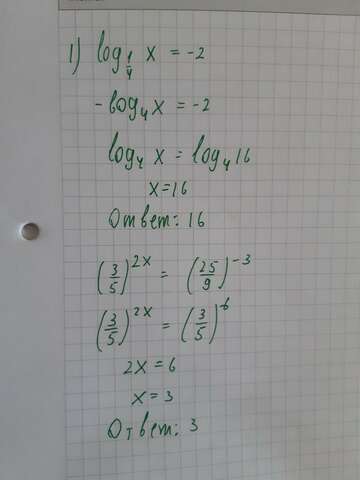 1) log_{1/4} x = -2
-log_4 x = -2
log_4 x = log_4 16
x = 16
Ответ: 16
(3/5)^{2x} = (25/9)^{-3}
(3/5)^{2x} = (3/5)^6
2x = 6
x = 3
Ответ: 3